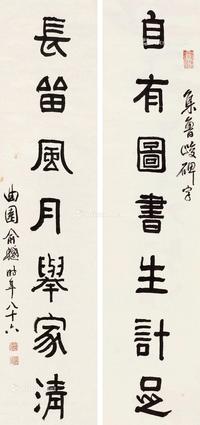 集魯峻碑字
自有圖書生計足
長留風月舉家清
曲園俞樾時年八十六